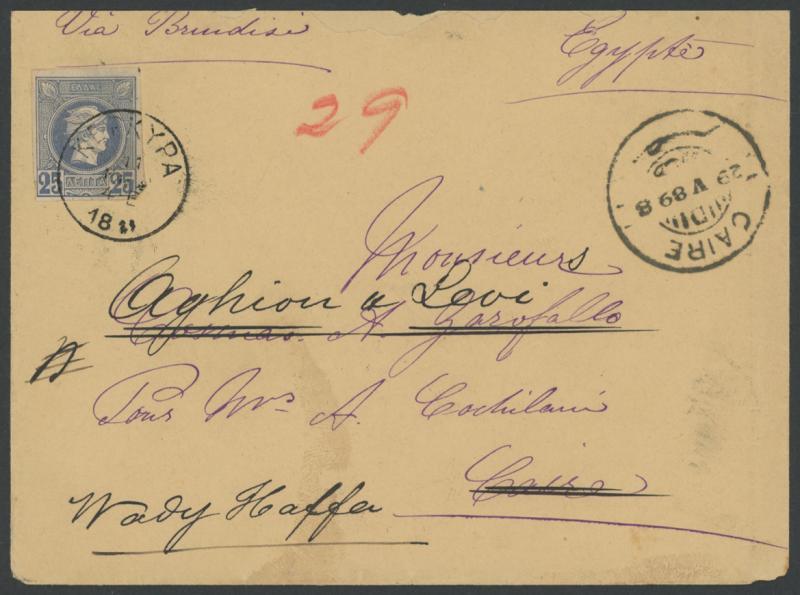 Via Brindisi
Egypte
29
ΕΛΛΑΣ
25 ΛΕΠΤΑ 25
ΚΕΡΚΥΡΑ
18
CAIRE
29 V 89 8
Monsieurs
Aghion & Levi
Cosmas. A. Garofallo
Pour Mrs A. Cochilani
Caire
Wady Halfa